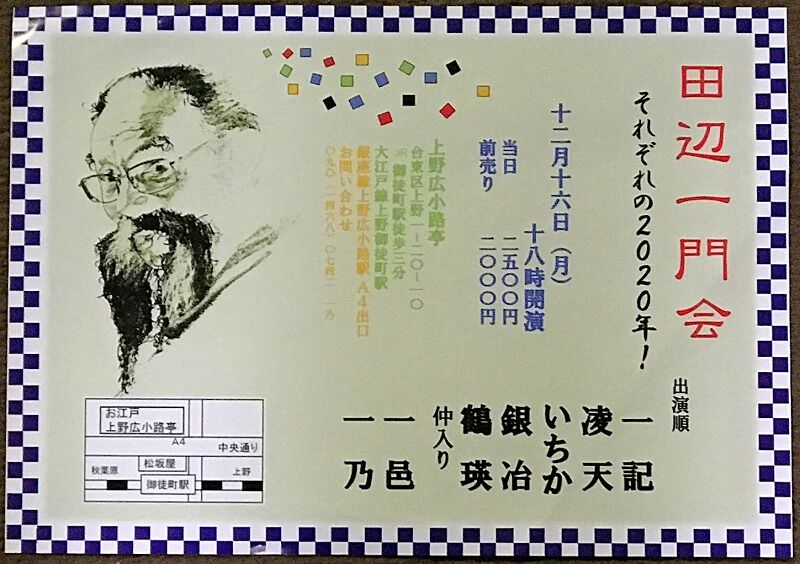 田辺一門会
それぞれの2020年!
出演順
一記
凌天
いちか
銀冶
鶴瑛
仲入り
一邑
一乃
十二月十六日(月)
十八時開演
当日 二五〇〇円
前売り 二〇〇〇円
上野広小路亭
台東区上野一ー二〇ー一〇
JR御徒町駅徒歩三分
大江戸線上野御徒町駅
銀座線上野広小路駅A4出口
お問い合わせ
〇九〇(一四六八)〇七四二 一乃
お江戸
上野広小路亭
A4
中央通り
松坂屋
秋葉原
上野
御徒町駅